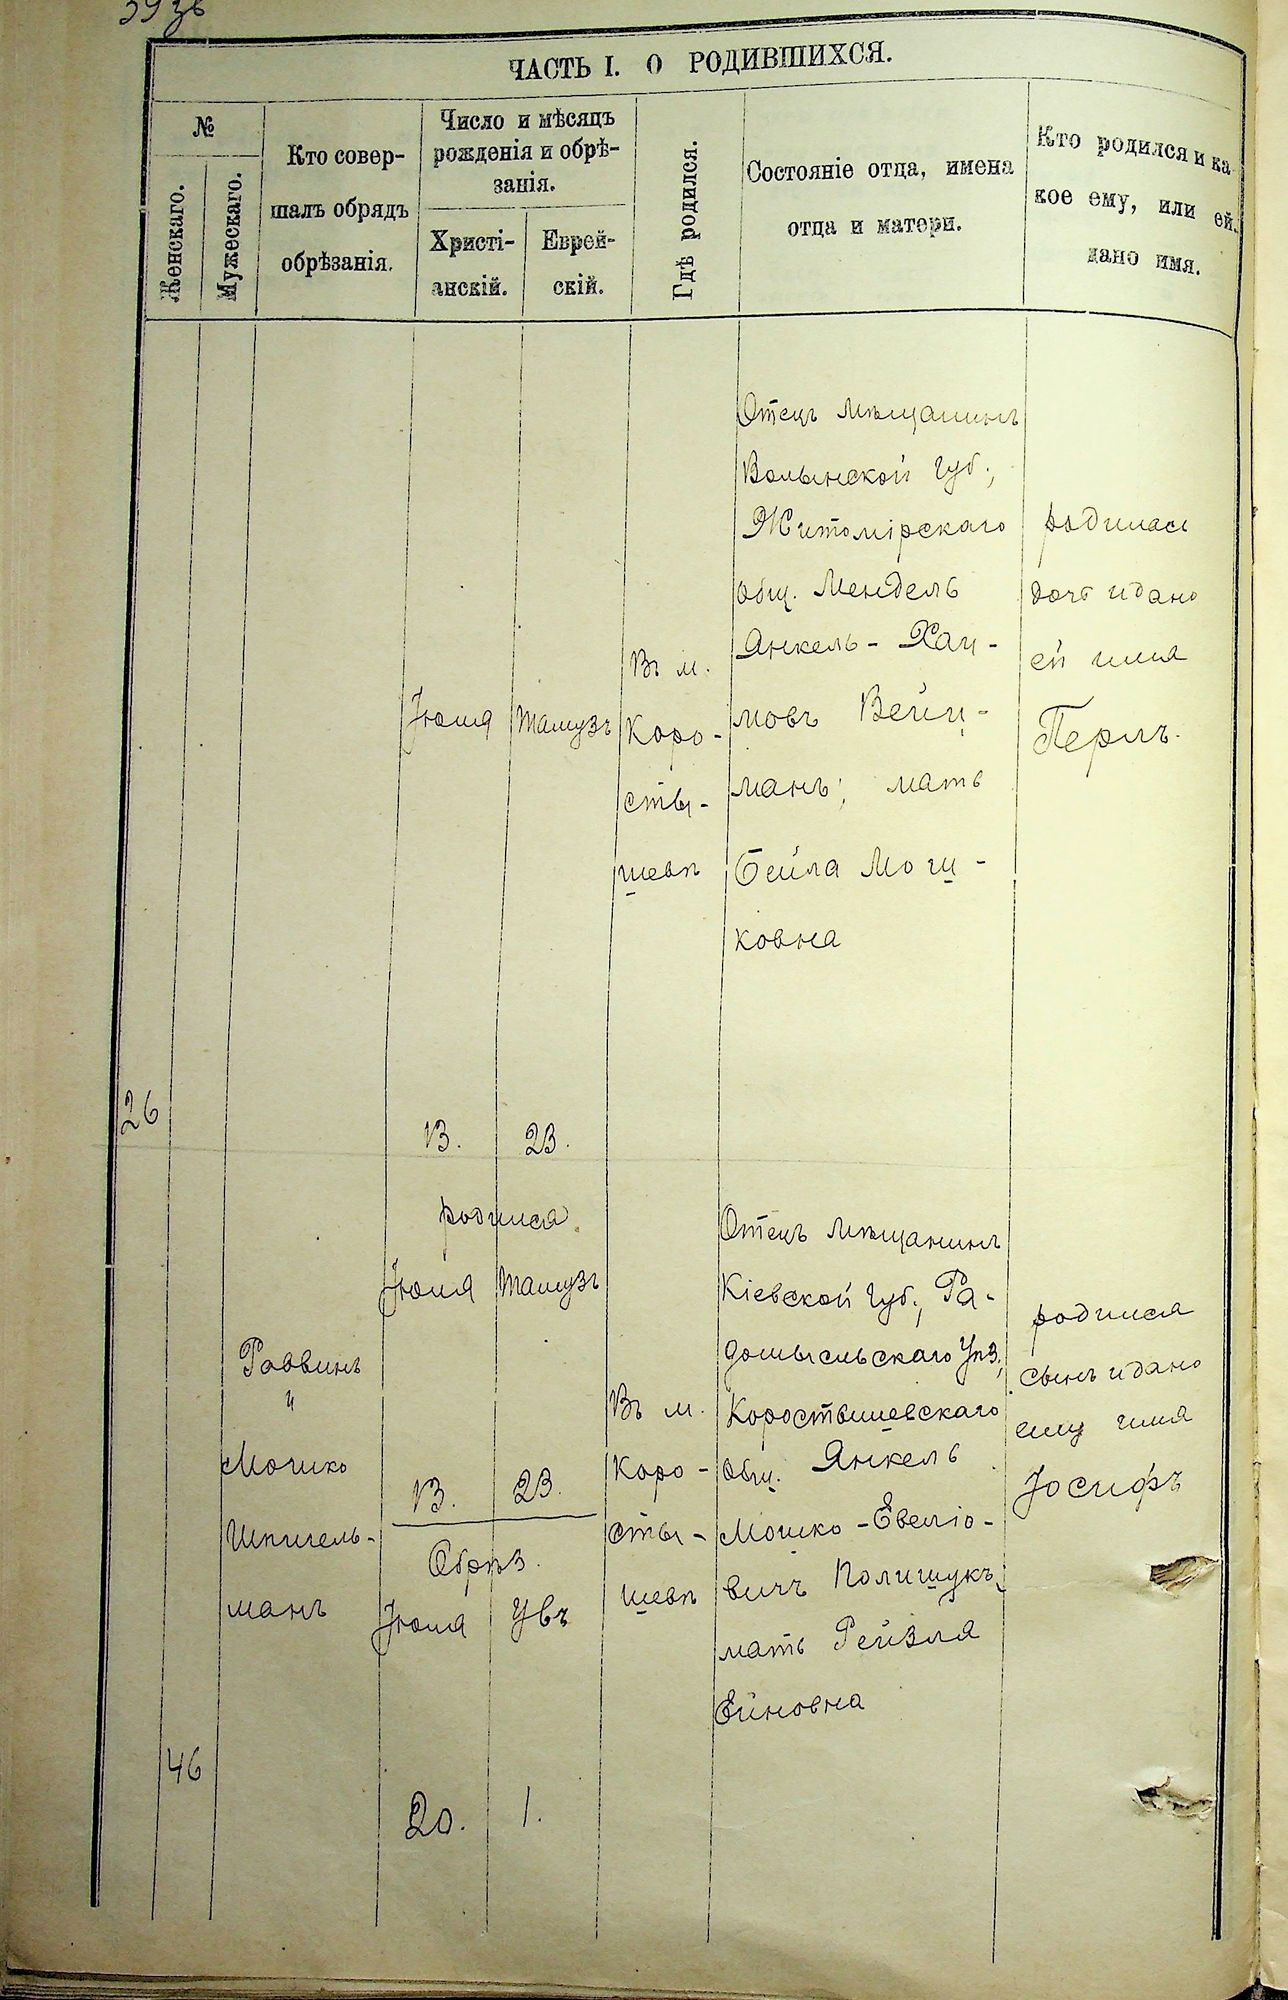 ЧАСТЬ I. О РОДИВШИХСЯ.
№
Женскаго.
Мужескаго.
Кто совер-
шалъ обрядъ
обрѣзанія.
Число и мѣсяцъ
рожденія и обрѣ-
занія.
Христі-
анскій.
Еврей-
скій.
Гдѣ родился.
Состояніе отца, имена
отца и матери.
Кто родился и ка
кое ему, или ей
дано имя.
26
Іюля
13.
Тамузъ
23.
Въ м.
Коро-
сты-
шевѣ
Отецъ мѣщанинъ
Волынской губ.,
Житомірскаго
общ. Мендель
Янкель-Хаи-
мовъ Вейц-
манъ; мать
Бейла Мош-
ковна
родилась
дочь и дано
ей имя
Перль.
46
Раввинъ
и
Мошко
Шпигель-
манъ
родился
Іюля
Тамузъ
13.
23.
Обрѣз.
Іюля
Увъ
20.
1.
Въ м.
Коро-
сты-
шевѣ
Отецъ мѣщанинъ
Кіевской губ., Ра-
домысльскаго Уѣз,
Коростышевскаго
общ. Янкель
Мошко-Евеліо-
вичъ Полищукъ,
мать Рейзля
родился
сынъ и дано
ему имя
Іосифъ